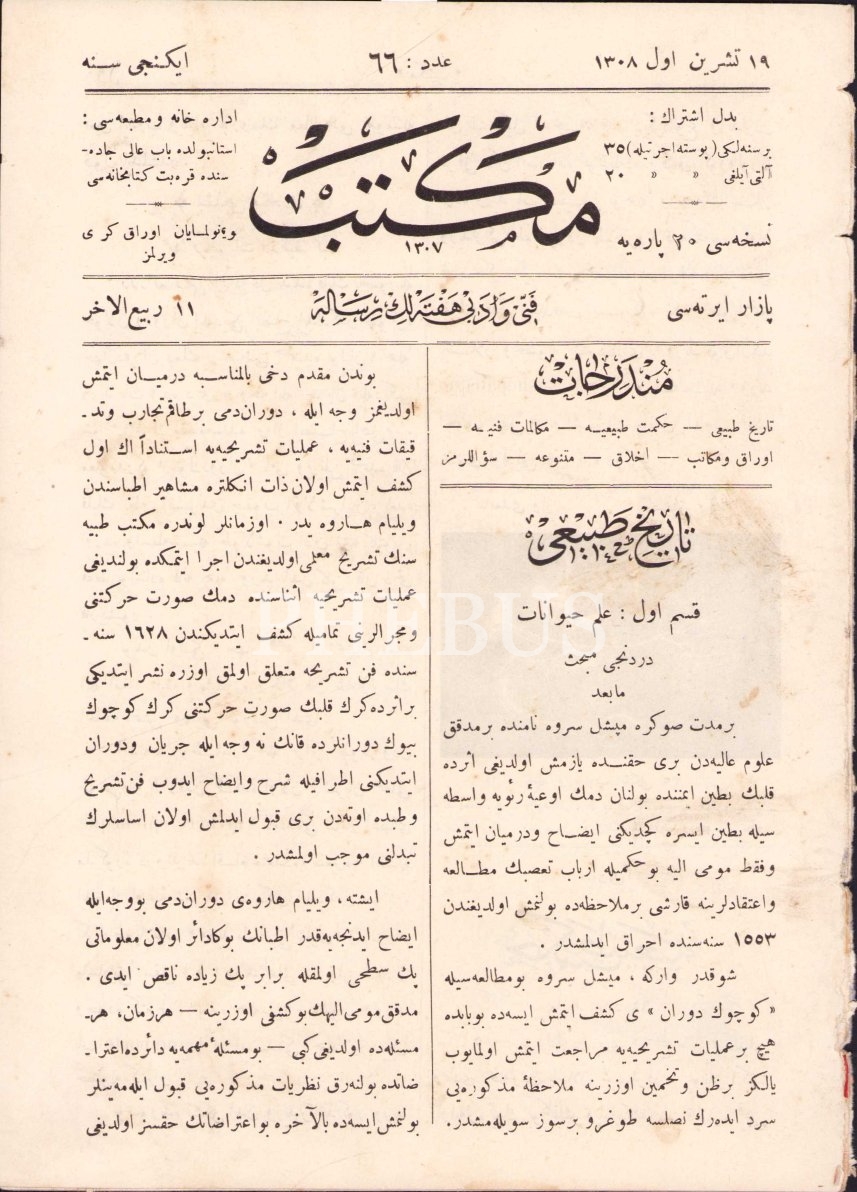 ١٩ تشرین اول ١٣٠٨
عدد : ٦٦
ایكنجی سنه
بدل اشتراك :
برسنه‌لكی (پوسته اجرتیله) ٣٥
آلتی آیلغی » » ٢٠
نسخه‌سی ٢٠ پاره‌یه
مكتب
١٣٠٧
اداره خانه و مطبعه‌سی :
استانبولده باب عالی جاده-
سنده قره‌بت كتابخانه‌سی
ویرلمز
پازار ایرته‌سی
فنی و ادبی هفته‌لك رساله
١١ ربیع الاخر
مندرجات
تاریخ طبیعی — حكمت طبیعیه — مكالمات فنیه —
اوراق ومكاتب — اخلاق — متنوعه — سؤاللرمز
تاریخ طبیعی
قسم اول : علم حیوانات
دردنجی مبحث
مابعد
برمدت صوكره میشل سروه نامنده برمدقق
علوم عالیه‌دن بری حقنده یازمش اولدیغی اثرده
قلبك بطین ایمننده بولنان دمك اوعیهٔ رئویه واسطه
سیله بطین ایسره كچدیكنی ایضاح ودرمیان ایتمش
وفقط مومی الیه بوحكمیله ارباب تعصبك مطالعه
واعتقادلرینه قارشی برملاحظه‌ده بولنمش اولدیغندن
١٥٥٣ سنه‌سنده احراق ایدلمشدر .
شوقدر واركه ، میشل سروه بومطالعه‌سیله
« كوچوك دوران » ی كشف ایتمش ایسه‌ده بوبابده
هیچ برعملیات تشریحیه‌یه مراجعت ایتمش اولمایوب
یالكز برظن وتخمین اوزرینه ملاحظهٔ مذكوره‌یی
سرد ایده‌رك نصلسه طوغرو برسوز سویله‌مشدر.
بوندن مقدم دخی بالمناسبه درمیان ایتمش
اولدیغمز وجه ایله ، دوران‌دمی برطاقم تجارب وتد-
قیقات فنیه‌یه ، عملیات تشریحیه‌یه استناداً اك اول
كشف ایتمش اولان ذات انكلتره مشاهیر اطباسندن
ویلیام هاروه یدر . اوزمانلر لوندره مكتب طبیه
سنك تشریح معلمی اولدیغندن اجرا ایتمكده بولندیغی
عملیات تشریحیه اثناسنده دمك صورت حركتنی
ومجرالرینی تمامیله كشف ایتدیكندن ١٦٢٨ سنه-
سنده فن تشریحه متعلق اولمق اوزره نشر ایتدیكی
براثرده كرك قلبك صورت حركتنی كرك كوچوك
بیوك دورانلرده قانك نه وجه‌ایله جریان ودوران
ایتدیكنی اطرافیله شرح وایضاح ایدوب فن تشریح
وطبده اوته‌دن بری قبول ایدلمش اولان اساسلرك
تبدلنی موجب اولمشدر .
ایشته ، ویلیام هاروه‌ی دوران‌دمی بووجه‌ایله
ایضاح ایدنجه‌یه‌قدر اطبانك بوكادائر اولان معلوماتی
پك سطحی اولمقله برابر پك زیاده ناقص ایدی .
مدقق مومی الیهك بوكشفی اوزرینه — هرزمان، هر-
مسئله‌ده اولدیغی كبی — بومسئلهٔ مهمه‌یه دائرده اعترا-
ضاتده بولنه‌رق نظریات مذكوره‌یی قبول ایله‌مه‌ینلر
بولنمش ایسه‌ده بالآخره بواعتراضاتك حقسز اولدیغی
PHEBUS